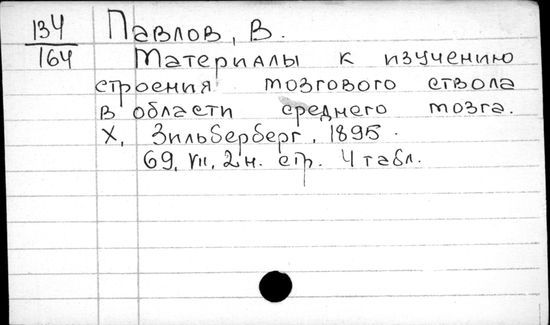 134
164
Павлов, В.
Материалы к изучению
строения мозгового ствола
в области среднего мозга.
Х, Зильберберг, 1895.
69, VII, 2 н. стр. 4 табл.